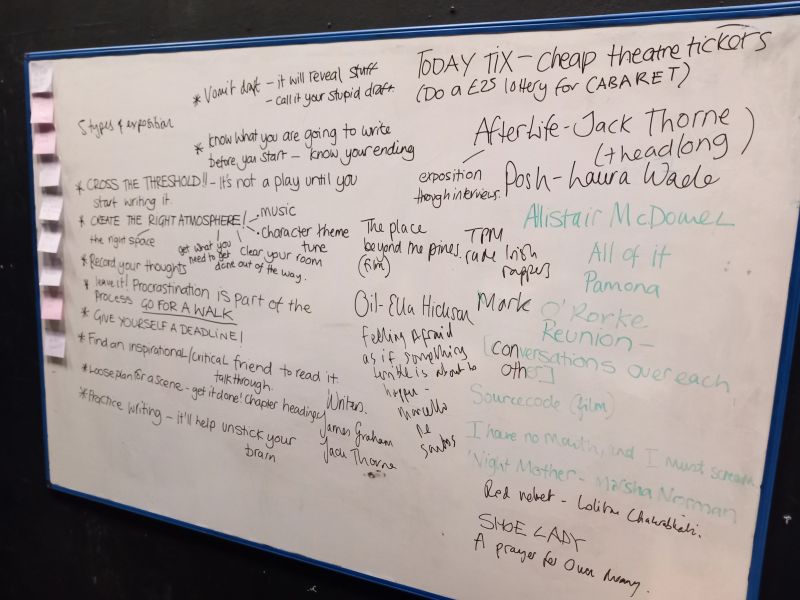 * Vomit draft - it will reveal stuff
- call it your stupid draft.
5 types of exposition
* Know what you are going to write
before you start - know your ending
* CROSS THE THRESHOLD!! - It's not a play until you
start writing it.
* CREATE THE RIGHT ATMOSPHERE!
music
Character theme
tune
the right space
get what you
need to get
done out of the way.
Clear your room
* Record your thoughts
* leave it! Procrastination is part of the
process GO FOR A WALK
* GIVE YOURSELF A DEADLINE!
* Find an inspirational/critical friend to read it.
talk through.
* Loose plan for a scene - get it done! Chapter headings
* Practice writing - it'll help unstick your
brain
Writers.
James Graham
Jack Thorne
The place
beyond the pines.
(film)
Oil - Ella Hickson
Feeling Afraid
as if something
terrible is about to
happen -
Marcello
De
Santos
TODAY TIX - cheap theatre tickets
(Do a £25 lottery for CABARET)
AfterLife - Jack Thorne
(+headlong)
exposition
though interviews.
Posh - Laura Wade
Alistair McDowel
TPM
rude Irish
rappers
All of it
Pamona
Mark O'Rorke
Reunion -
[conversations over each
other]
Sourcecode (film)
I have no Mouth, and I must scream
'Night Mother - Marsha Norman
Red velvet - Lolita Chakrabati.
SHOE LADY
A prayer for Owen Meany.